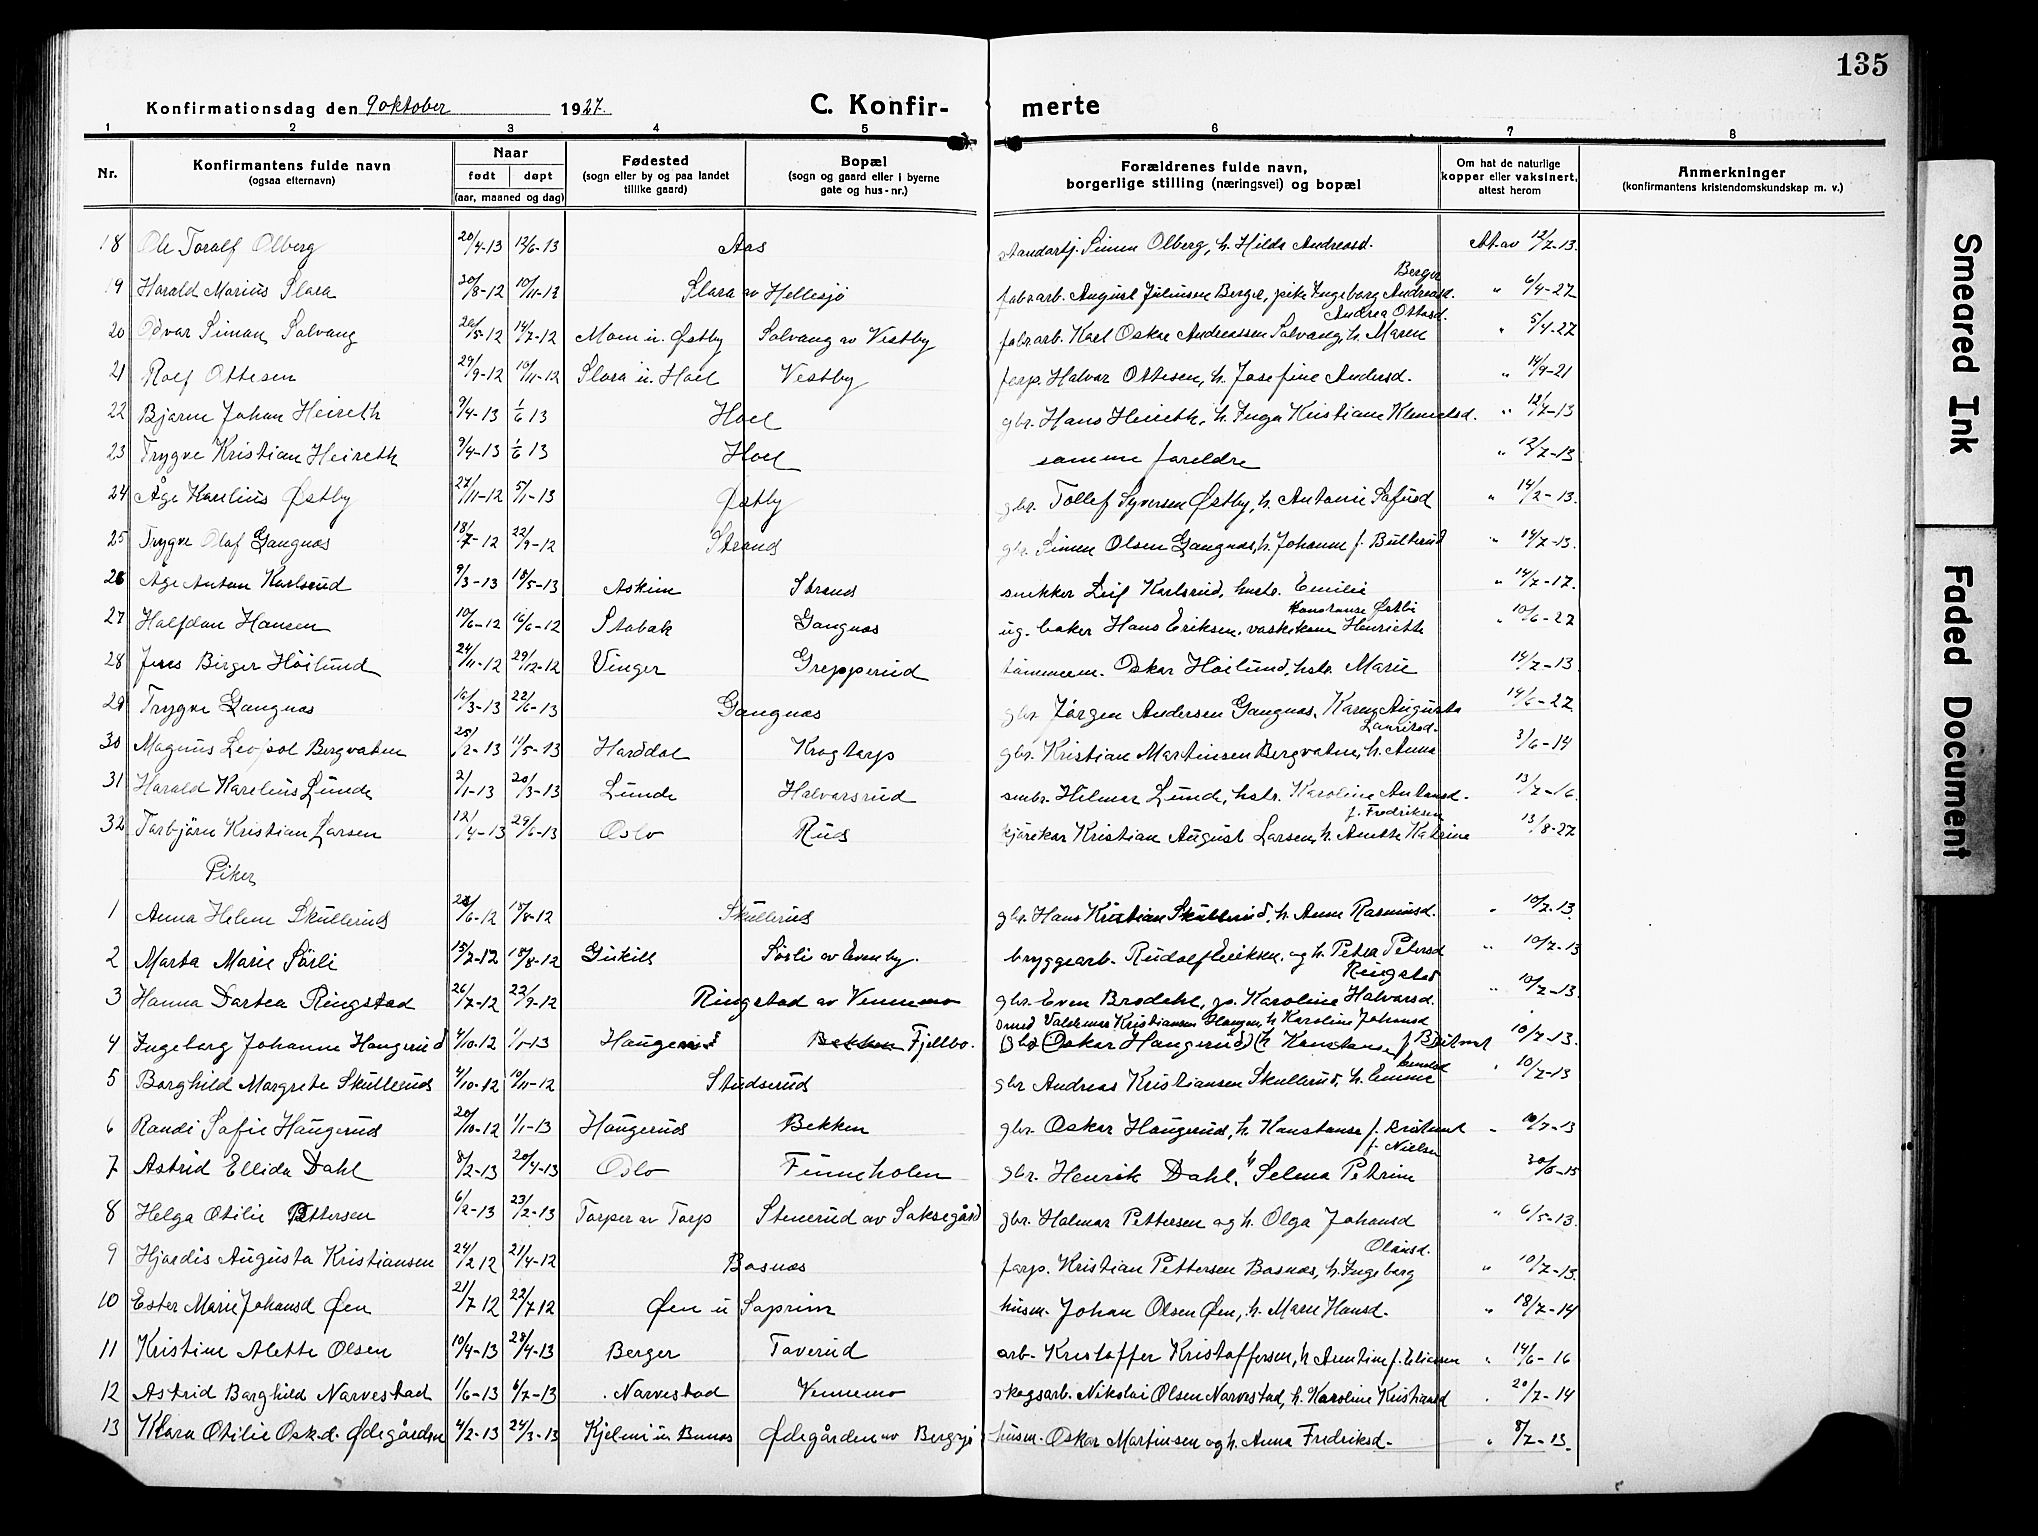 135
Konfirmationsdag den 9 oktober 1927.
C. Konfir- merte
1 2 3 4 5 6 7 8
Nr.
Konfirmantens fulde navn
(ogsaa efternavn)
Naar
født døpt
(aar, maaned og dag)
Fødested
(sogn eller by og paa landet
tillike gaard)
Bopæl
(sogn og gaard eller i byerne
gate og hus-nr.)
Forældrenes fulde navn,
borgerlige stilling (næringsvei) og bopæl
Om hat de naturlige
kopper eller vaksinert,
attest herom
Anmerkninger
(konfirmantens kristendomskundskap m. v.)
18 Ole Toralf Olberg 20/4-13 12/6-13 Aas Simen Olberg, h. Hilda Andreasd. At. av 12/7-13.
Berger
19 Harald Marius Slara 30/8-12 10/11-12 Slara av Hellesjø fabr.arb. August Juliussen Berger, pike Ingeborg Andreasd. " 6/4-27
Andrea Ottosd.
20 Odvar Simon Solvang 26/5-12 14/7-12 Moen u. Østby Solvang av Vestby fabr.arb. Karl Oskar Andreassen Solvang, h. Maren " 5/4-27
21 Rolf Ottesen 29/9-12 10/11-12 Slara u. Hoel Vestby forp. Halvor Ottesen, h. Josefine Andersd. " 14/9-21
22 Bjarne Johan Heireth 9/4-13 1/6 13 Hoel gbr. Hans Heireth, h. Inga Kristiane Klemetsd. " 12/7-13
23 Trygve Kristian Heireth 9/4-13 1/6 13 Hoel samme foreldre " 12/7-13
24 Åge Karelius Østby 27/11-12 5/1-13 Østby gbr. Tollef Syversen Østby, h. Antonie " 14/2-13.
25 Trygve Olaf Gangnæs 18/7-12 22/9-12 Strand gbr. Simen Olsen Gangnæs, h. Johanne f. Bulterud " 14/7-13.
26 Åge Anton Karlsrud 9/3-13 18/5-13 Askim Strand snekker Leif Karlsrud, hustr. Emilie " 14/7-17.
Konstanse Østbi
27 Halfdan Hansen 10/6-12 16/6-12 Stabæk Gangnæs ug. baker Hans Eriksen, vaskekone Henriette " 10/6-27
28 Jens Birger Höilund 24/11-12 29/12-12 Vinger Grepperud tömmerm. Oskar Höilund, hstr. Marie 14/7-13
29 Trygve Gangnæs 16/3-13 22/6-13 Gangnæs gbr. Jörgen Andersen Gangnæs, Karen Augusta 14/6-27
Lauritsd.
30 Magnus Leopol Bergvaten 25/2-13 11/5-13 Harddal Krogtorp gbr. Kristian Martinsen Bergvatne, h. Anna 3/6-14
31 Harald Karelius Lunde 2/1-13 20/3-13 Lunde Halvorsrud smbr. Hilmar Lund, hstr. Karoline Antonsd. 13/7-16.
f. Fredriksen
32 Torbjörn Kristian Larsen 12/4-13 29/6-13 Oslo Rud kjörekar Kristian August Larsen, h. Anette Katrine 13/8-27
Piker
1 Anna Helene Skullerud 28/6-12 18/8-12 Skullerud gbr. Hans Kristian Skullerud, h. Anne Rasmusd. " 10/7-13.
2 Marta Marie Sörli 15/7-12 18/8-12 Sörli av Evenby. bryggearb. Rudolf Eriksen, og h. Petra Petersd " 10/7-13
Ringstad
3 Hanna Dortea Ringstad 26/7-12 22/9-12 Ringstad av Vennemo gbr. Even Brodahl, Karoline Halvorsd. " 10/7-13.
smed Valdemar Kristiansen Haugen, h. Karoline Johansd
4 Ingeborg Johanne Haugerud 4/10-12 1/1-13 Haugerud Bekken Fjellbo. Gbr (Oskar Haugerud) (h. Konstanse f Britnæt 10/7-13.
5 Borghild Margrete Skullerud 4/10-12 10/11-12 Studserud gbr Andreas Kristiansen Skullerud, h. Emma " 10/7-13
6 Randi Sofie Haugerud 20/10-12 1/1-13 Haugerud Bekken gbr. Oskar Haugerud, h. Konstanse f. Britnæt " 10/7-13
f. Nielsen
7 Astrid Ellida Dahl 8/2-13 20/4-13 Oslo Finneholen gbr. Henrik Dahl, h Selma Petrine 30/6-15
8 Helga Otilie Pettersen 6/2-13 23/2-13 Torper av Torp Stenerud av Saksegård gbr. Halmar Pettersen og h. Olga Johansd " 6/5-13.
Olausd.
9 Hjördis Augusta Kristiansen 24/2 12 21/4-12 Bosnæs forp. Kristian Pettersen Bosnæs, h. Ingeborg " 10/7-13.
10 Ester Marie Johansd Øen 21/7 12 22/7 12 Øen u Soprim husm. Johan Olsen Øen, h. Marie Hansd. " 18/7-14
11 Kristine Alette Olsen 10/4-13 28/4-13 Berger Taverud arb. Kristoffer Kristoffersen, h. Arentine f. Eliassen " 14/6-16
12 Astrid Borghild Narvestad 1/6-13 6/7-13 Narvestad Vennemo skogsarb. Nikolai Olsen Narvestad, h. Karoline Kristiansd " 20/7-14
13 Klara Otilie Osk.d. Ødegården 4/2-13 24/3-13 Kjelmi u. Bunes Ødegården av Bergsjö husm. Oskar Martinsen og h. Anna Fredriksd. " 8/7-13.
Smeared Ink
Faded Document